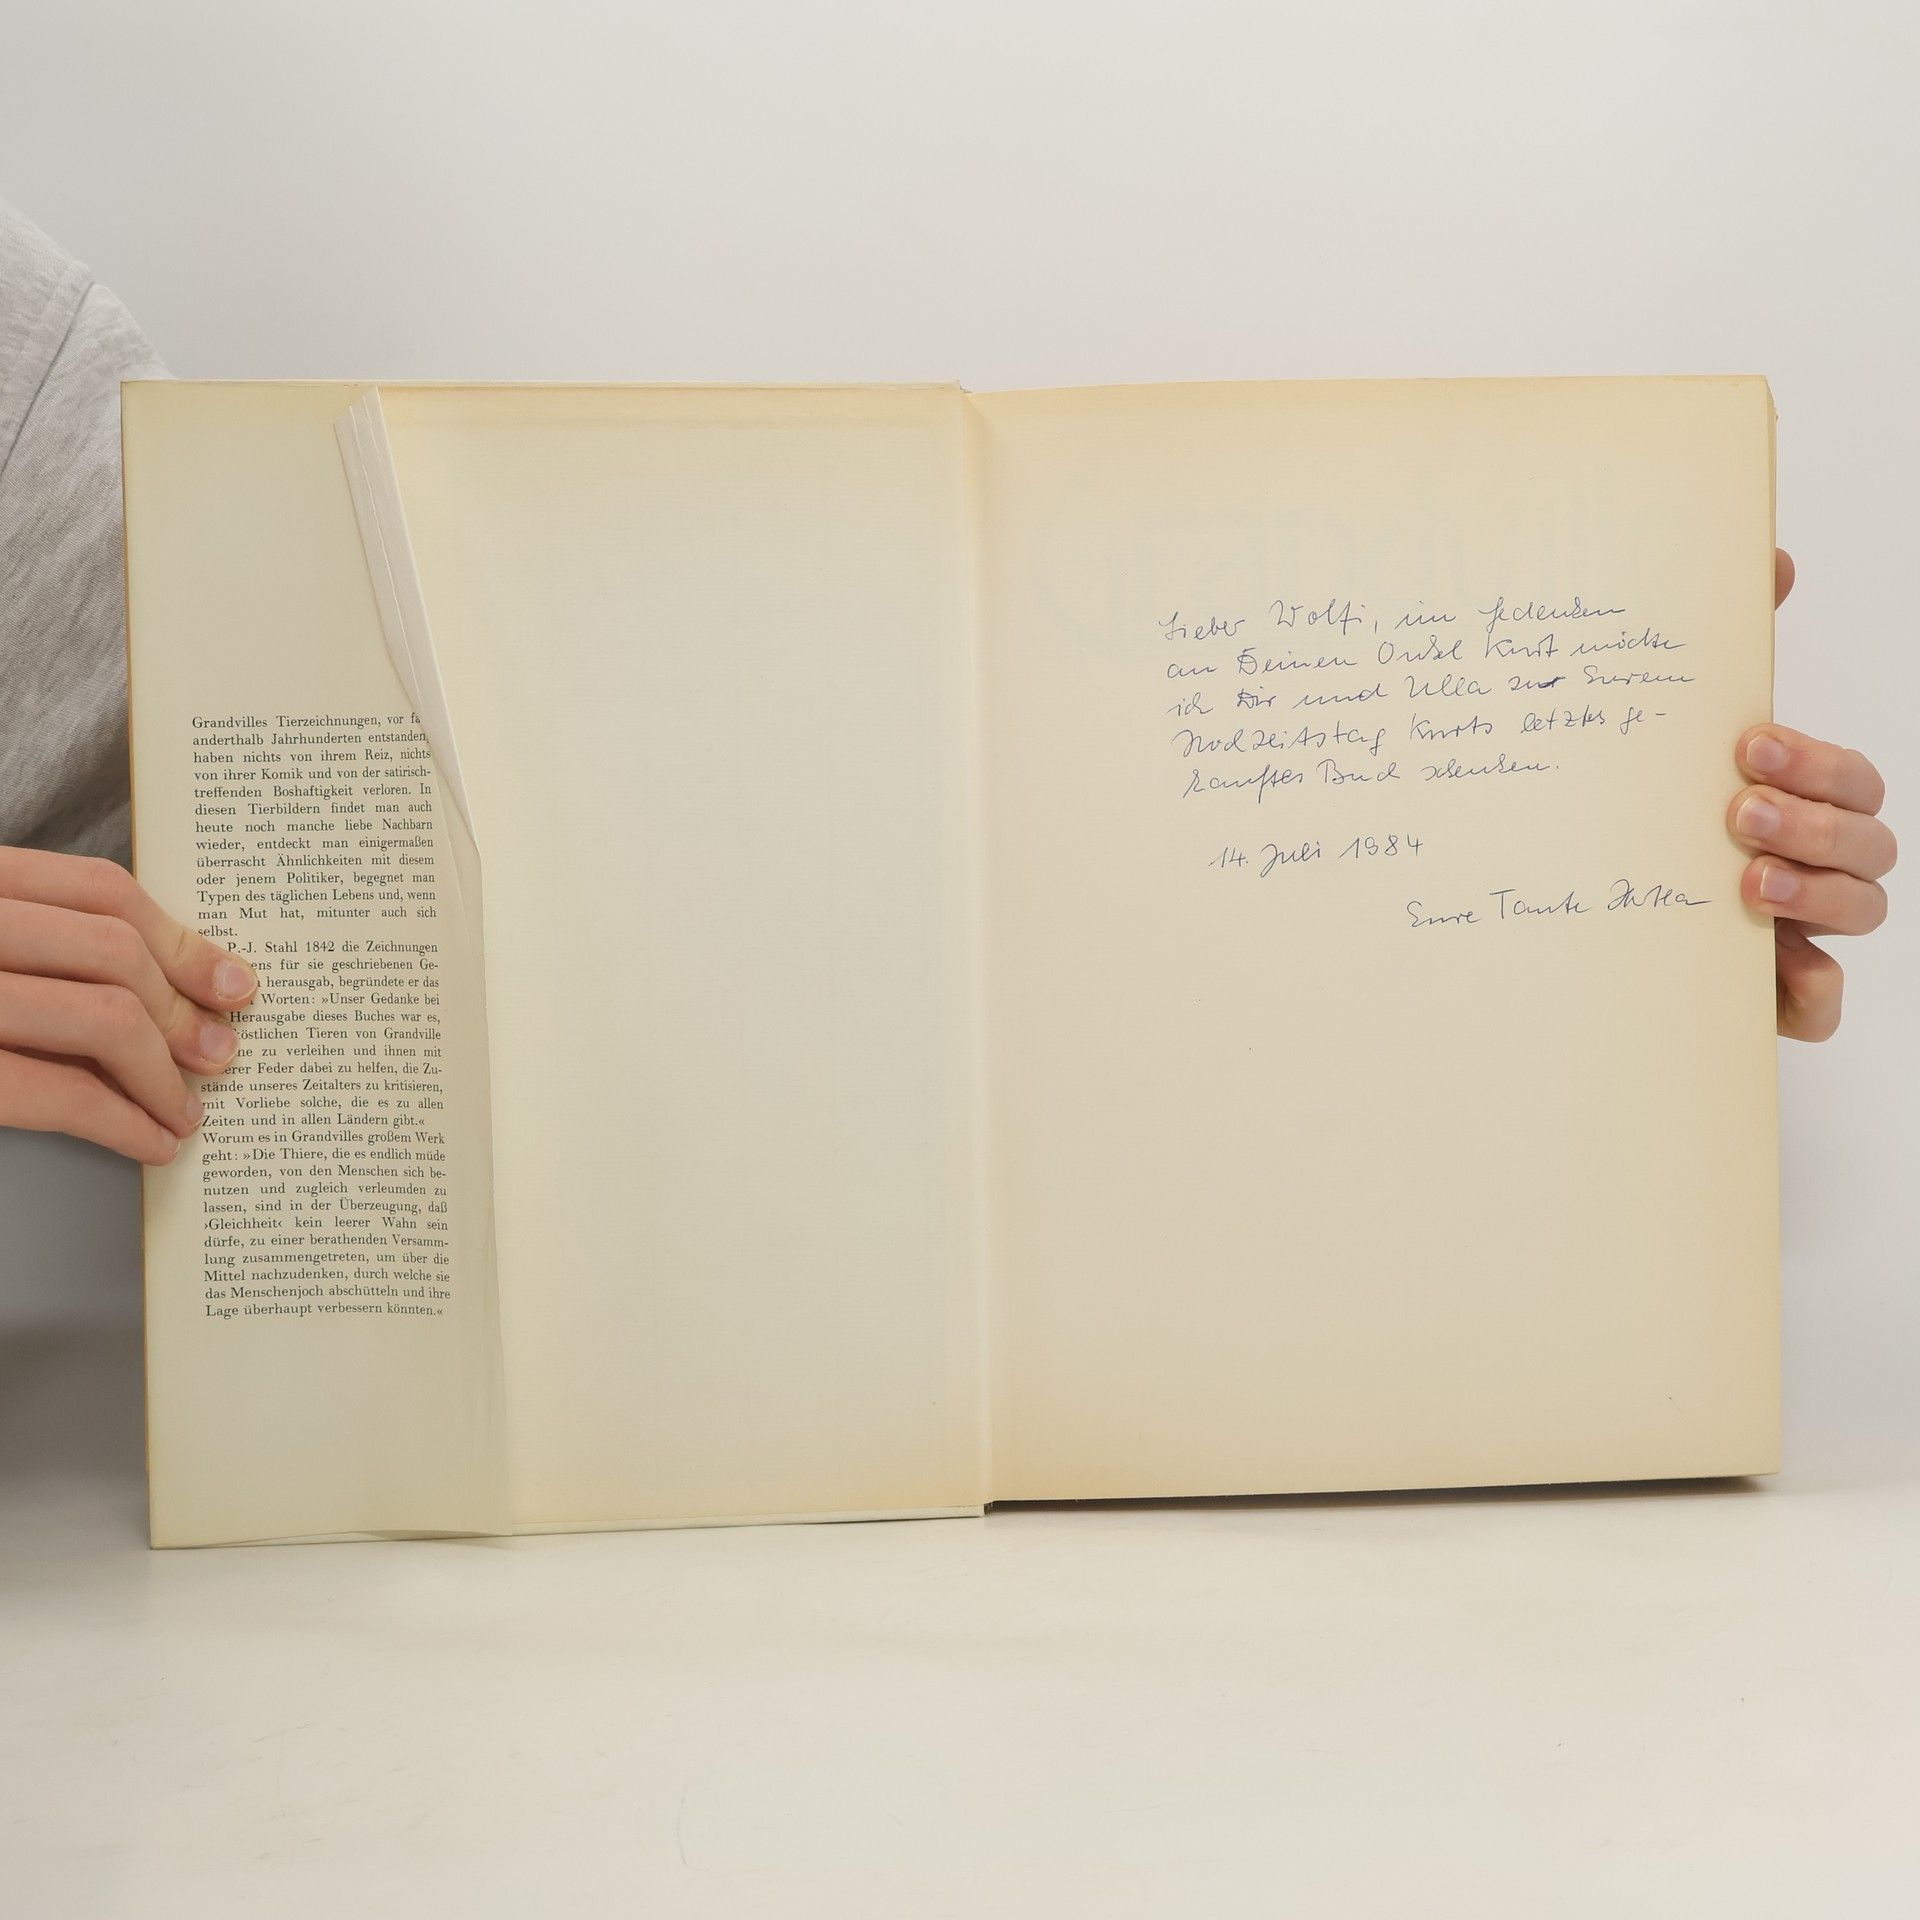 Grandvilles Tierzeichnungen, vor
anderthalb Jahrhunderten entstanden,
haben nichts von ihrem Reiz, nichts
von ihrer Komik und von der satirisch-
treffenden Boshaftigkeit verloren. In
diesen Tierbildern findet man auch
heute noch manche liebe Nachbarn
wieder, entdeckt man einigermaßen
überrascht Ähnlichkeiten mit diesem
oder jenem Politiker, begegnet man
Typen des täglichen Lebens und, wenn
man Mut hat, mitunter auch sich
selbst.
P.-J. Stahl 1842 die Zeichnungen
für sie geschriebenen Ge-
herausgab, begründete er das
Worten: »Unser Gedanke bei
Herausgabe dieses Buches war es,
köstlichen Tieren von Grandville
zu verleihen und ihnen mit
Feder dabei zu helfen, die Zu-
stände unseres Zeitalters zu kritisieren,
mit Vorliebe solche, die es zu allen
Zeiten und in allen Ländern gibt.«
Worum es in Grandvilles großem Werk
geht: »Die Thiere, die es endlich müde
geworden, von den Menschen sich be-
nutzen und zugleich verleumden zu
lassen, sind in der Überzeugung, daß
›Gleichheit‹ kein leerer Wahn sein
dürfe, zu einer berathenden Versamm-
lung zusammengetreten, um über die
Mittel nachzudenken, durch welche sie
das Menschenjoch abschütteln und ihre
Lage überhaupt verbessern könnten.«
Lieber Wolfi, im Gedenken
an Deinen Onkel Kurt möchte
ich Dir und Ulla zur Eurem
Hochzeitstag Kurts letztes ge-
kauftes Buch schenken.
14. Juli 1984
Eure Tante